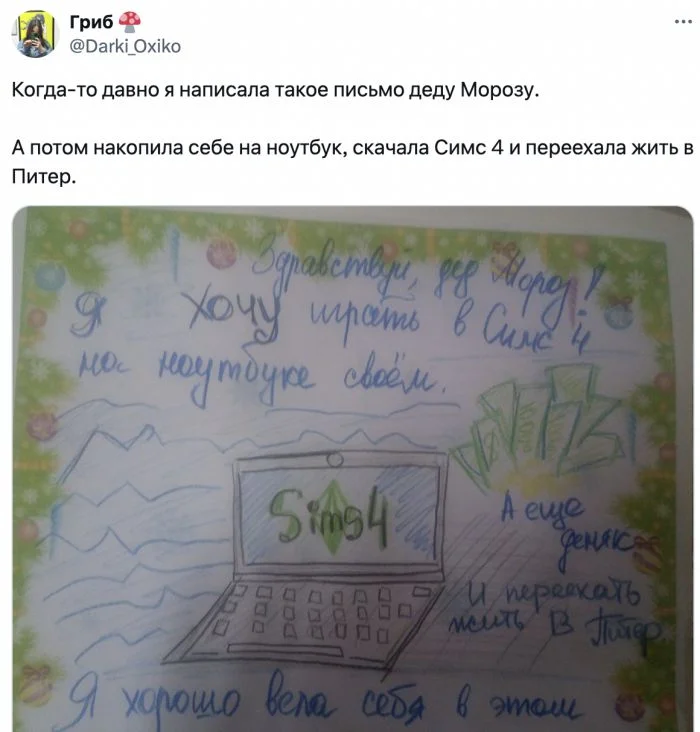 Гриб🍄
@Darki_Oxiko
Когда-то давно я написала такое письмо деду Морозу.
А потом накопила себе на ноутбук, скачала Симс 4 и переехала жить в
Питер.
Здравствуй, дед Мороз!
Я хочу играть в Симс 4
на ноутбуке своём.
Sims4
А еще
деняк
И переехать
жить в Питер
Я хорошо вела себя в этом